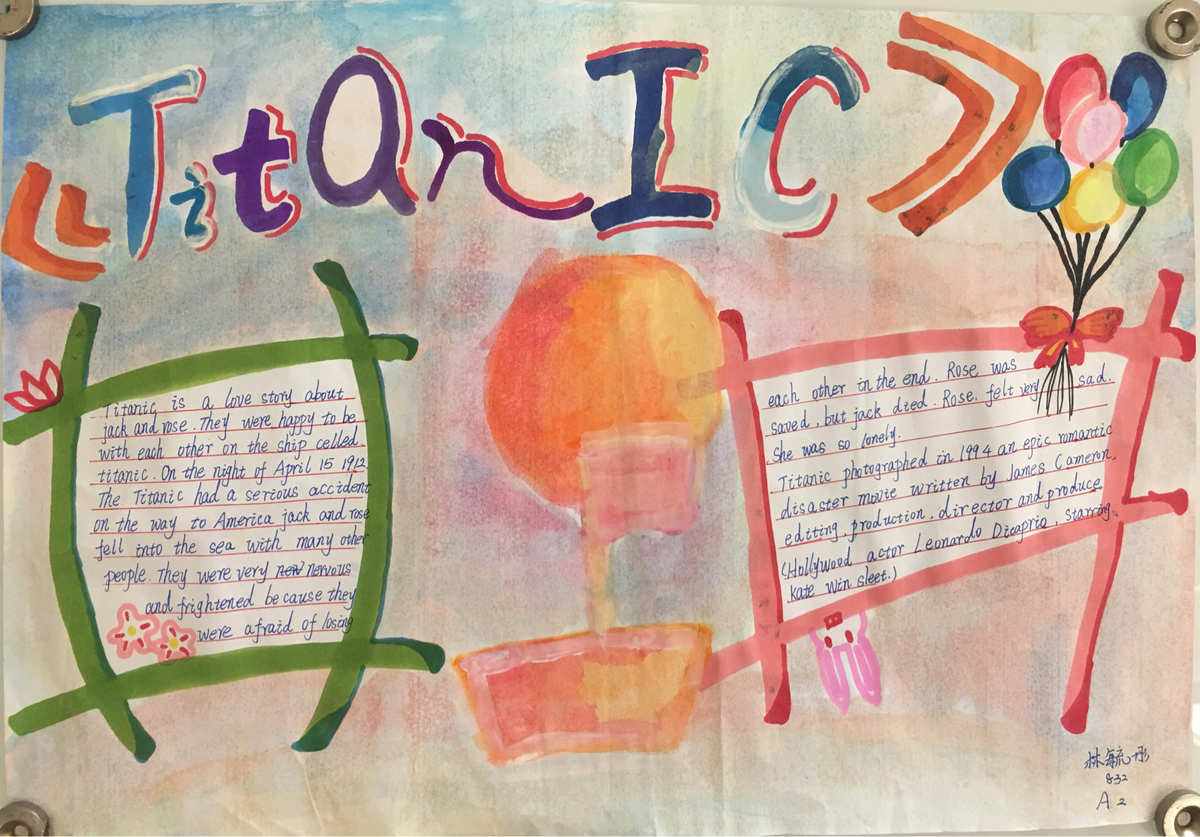 《TitanIC》
Titanic is a love story about
jack and rose. They were happy to be
with each other on the ship celled
titanic. On the night of April 15 1912
The Titanic had a serious accident
on the way to America jack and rose
fell into the sea with many other
people. They were very nervous
and frightened because they
were afraid of losing
each other in the end. Rose was
saved, but jack died. Rose felt very sad.
She was so lonely.
Titanic photographed in 1994 an epic romantic
disaster movie written by James Cameron.
editing, production, director and produce
(Hollywood actor Leonardo Dicaprio, starring
kate win sleet.)
林毓彤
832
A2